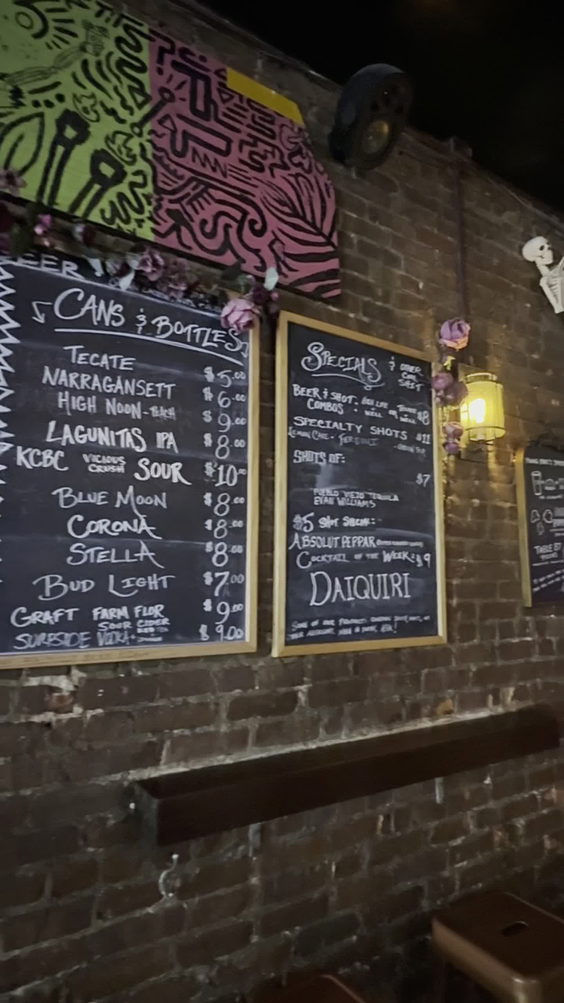 BEER
CANS & BOTTLES
TECATE $5.00
NARRAGANSETT $6.00
HIGH NOON - PEACH $9.00
LAGUNITAS IPA $8.00
KCBC VICIOUS CRUSH SOUR $10.00
BLUE MOON $8.00
CORONA $8.00
STELLA $8.00
BUD LIGHT $7.00
GRAFT FARM FLOR SOUR CIDER $9.00
SURFSIDE $9.00
SPECIALS & OTHER COOL SHIT
BEER & SHOT COMBOS $8
SPECIALTY SHOTS $11
SHOTS OF:
$7
PUEBLO VIEJO TEQUILA
EVAN WILLIAMS
$5 SHOT SPECIAL:
ABSOLUT PEPPAR
COCKTAIL OF THE WEEK: $9
DAIQUIRI
SOME OF OUR PRODUCTS CONTAIN
TABLE